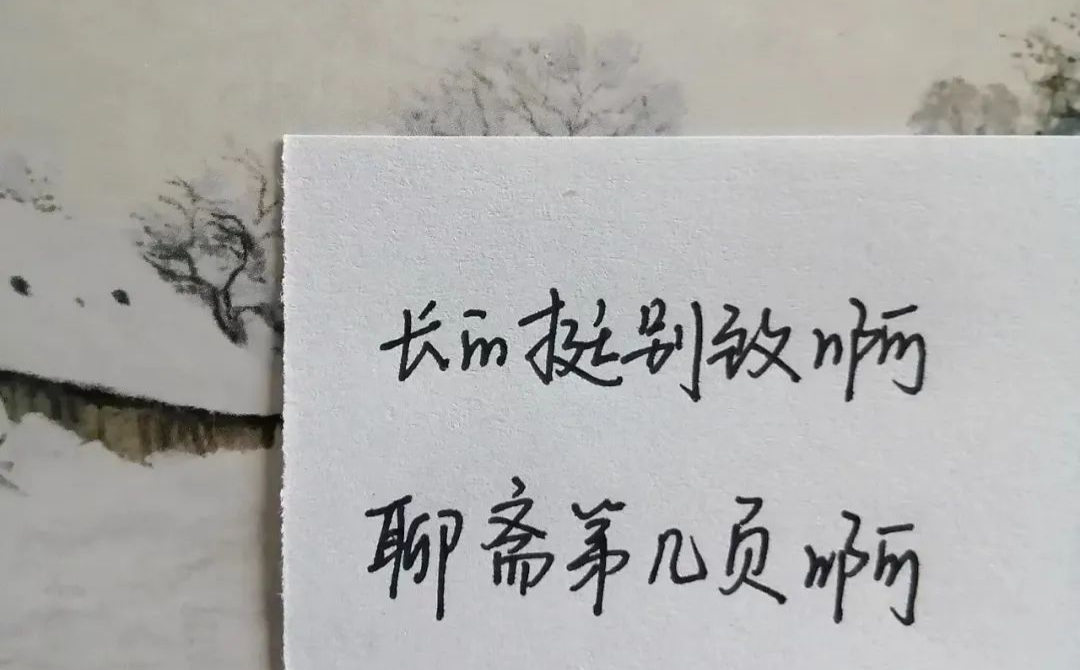 长的挺别致啊
聊斋第几页啊